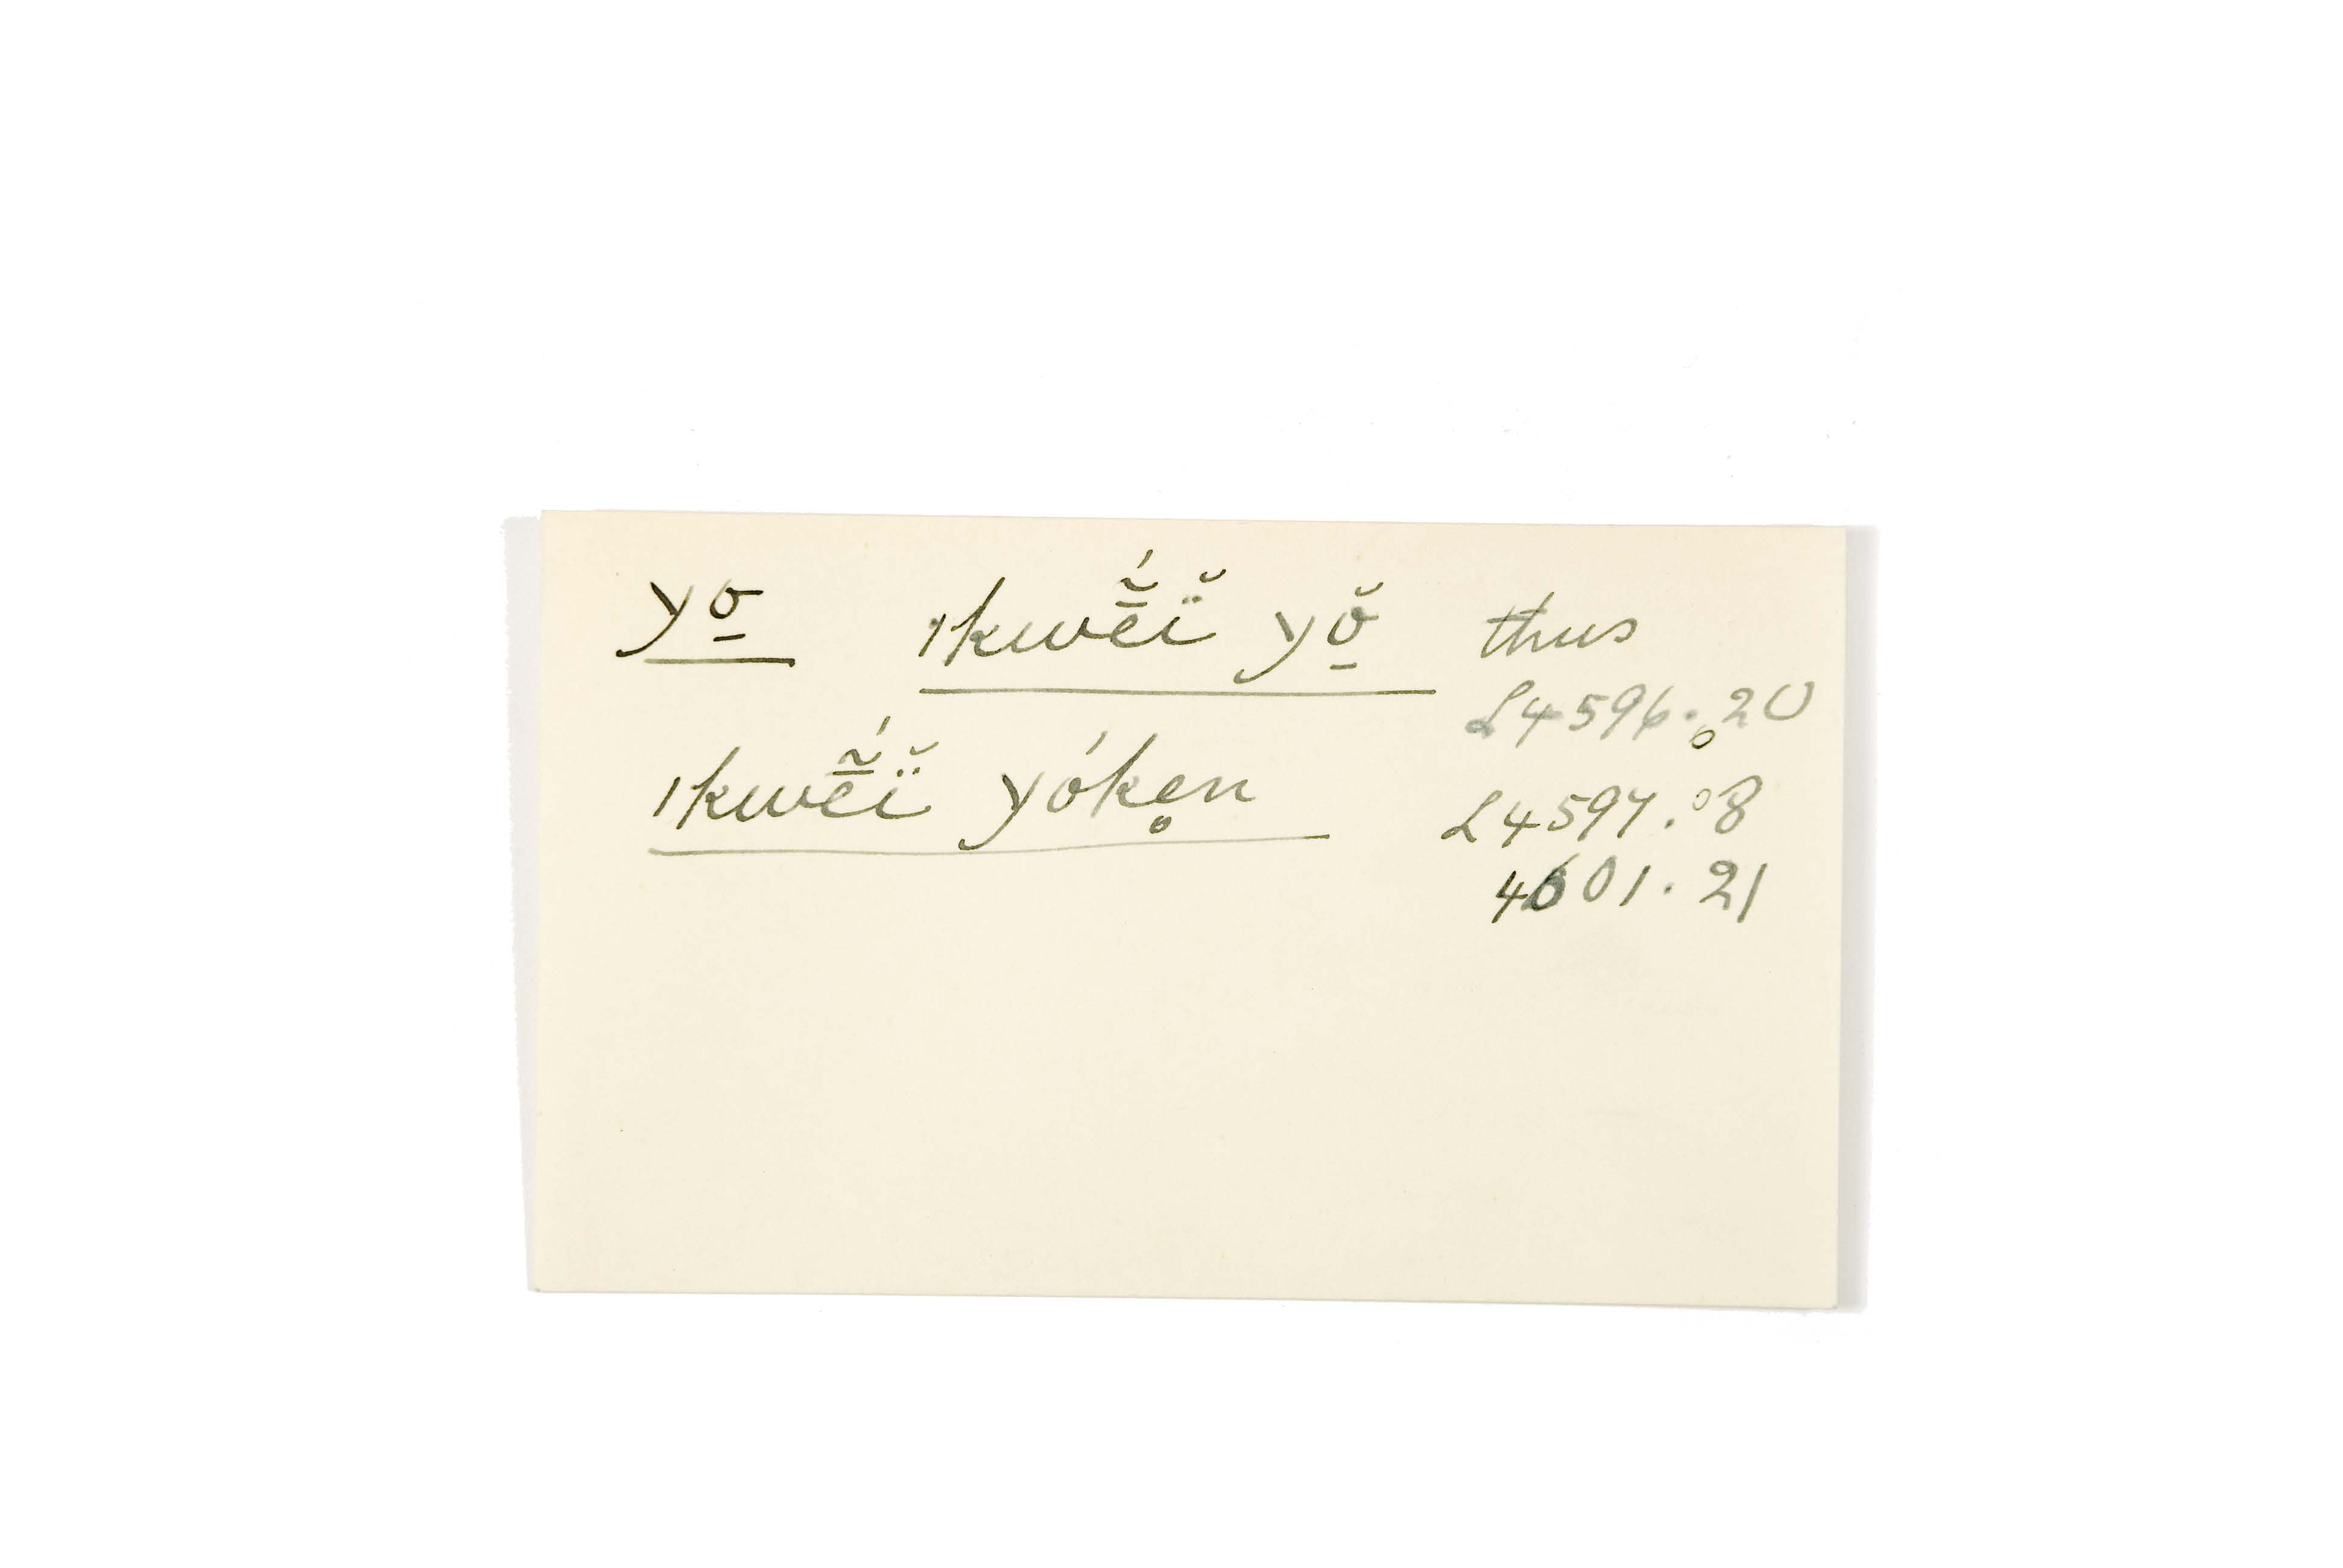 yo̱ ꞁkwē̃́ĭ̈ yŏ̱ thus
L4596.20
ꞁkwē̃́ĭ̈ yóke̥n L4597.8
4601.21